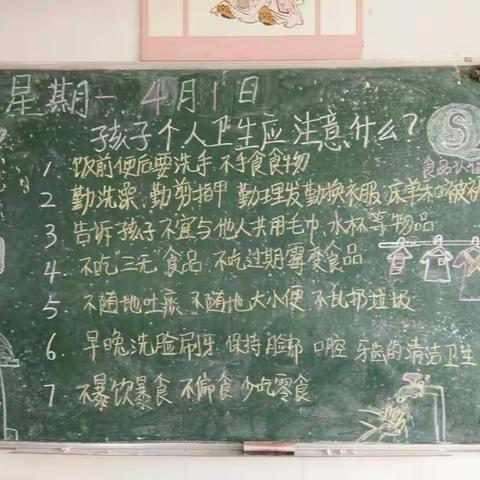 星期一 4月1日
孩子个人卫生应注意什么?
S
食品认证
1 饭前便后要洗手 不手食食物
2 勤洗澡、勤剪指甲 勤理发勤换衣服 床单和被褥
3 告诉孩子不宜与他人共用毛巾,水杯等物品
4 不吃"三无"食品 不吃过期霉变食品
5 不随地吐痰 不随地大小便 不乱扔垃圾
6. 早晚洗脸刷牙 保持脸部 口腔 牙齿的清洁卫生
7 不暴饮暴食 不偏食 少吃零食